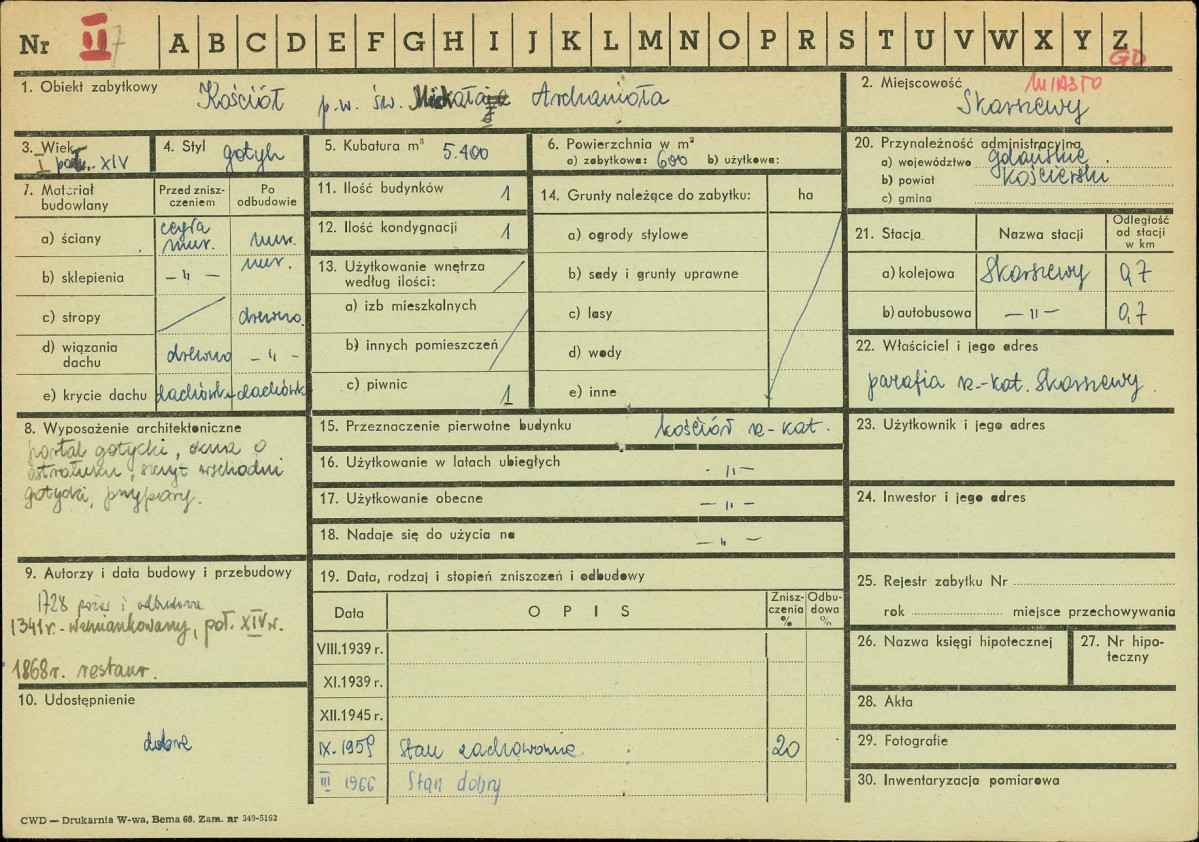 Nr II 7 A B C D E F G H I J K L M N O P R S T U V W X Y Z
GD
1. Obiekt zabytkowy Kościół p.w. św. Archanioła
2. Miejscowość MIASTO
Skarszewy
3. Wiek
I poł. XIV
4. Styl gotyk
5. Kubatura m³ 5.400
6. Powierzchnia w m²
a) zabytkowa: 600 b) użytkowa:
20. Przynależność administracyjna
a) województwo gdańskie
b) powiat kościerski
c) gmina
7. Materiał budowlany
Przed zniszczeniem
Po odbudowie
a) ściany cegła mur. mur.
b) sklepienia -〃- mur.
c) stropy drewno
d) wiązania dachu drewno -〃-
e) krycie dachu dachówka dachówk
11. Ilość budynków 1
12. Ilość kondygnacji 1
13. Użytkowanie wnętrza
według ilości:
a) izb mieszkalnych
b) innych pomieszczeń
c) piwnic 1
14. Grunty należące do zabytku: ha
a) ogrody stylowe
b) sady i grunty uprawne
c) lasy
d) wody
e) inne
21. Stacja Nazwa stacji
Odległość
od stacji
w km
a) kolejowa Skarszewy 0,7
b) autobusowa -〃- 0,7
22. Właściciel i jego adres
parafia rz-kat. Skarszewy.
8. Wyposażenie architektoniczne
portal gotycki, okna o
ostrołuku, szczyt wschodni
gotycki, przypory.
15. Przeznaczenie pierwotne budynku kościół rz-kat.
16. Użytkowanie w latach ubiegłych -〃-
17. Użytkowanie obecne -〃-
18. Nadaje się do użycia na -〃-
23. Użytkownik i jego adres
24. Inwestor i jego adres
9. Autorzy i data budowy i przebudowy
1728 pożar i odbudowa
1341r.- wzmiankowany, poł. XIV w.
1868r. restaur.
10. Udostępnienie
dobre
19. Data, rodzaj i stopień zniszczeń i odbudowy
Data OPIS
Zniszczenia %
Odbudowa %
VIII.1939 r.
XI.1939 r.
XII.1945 r.
IX.1959 Stan zachowania 20
III 1966 Stan dobry
25. Rejestr zabytku Nr
rok miejsce przechowywania
26. Nazwa księgi hipotecznej
27. Nr hipoteczny
28. Akta
29. Fotografie
30. Inwentaryzacja pomiarowa
CWD — Drukarnia W-wa, Bema 60. Zam. nr 349-5162